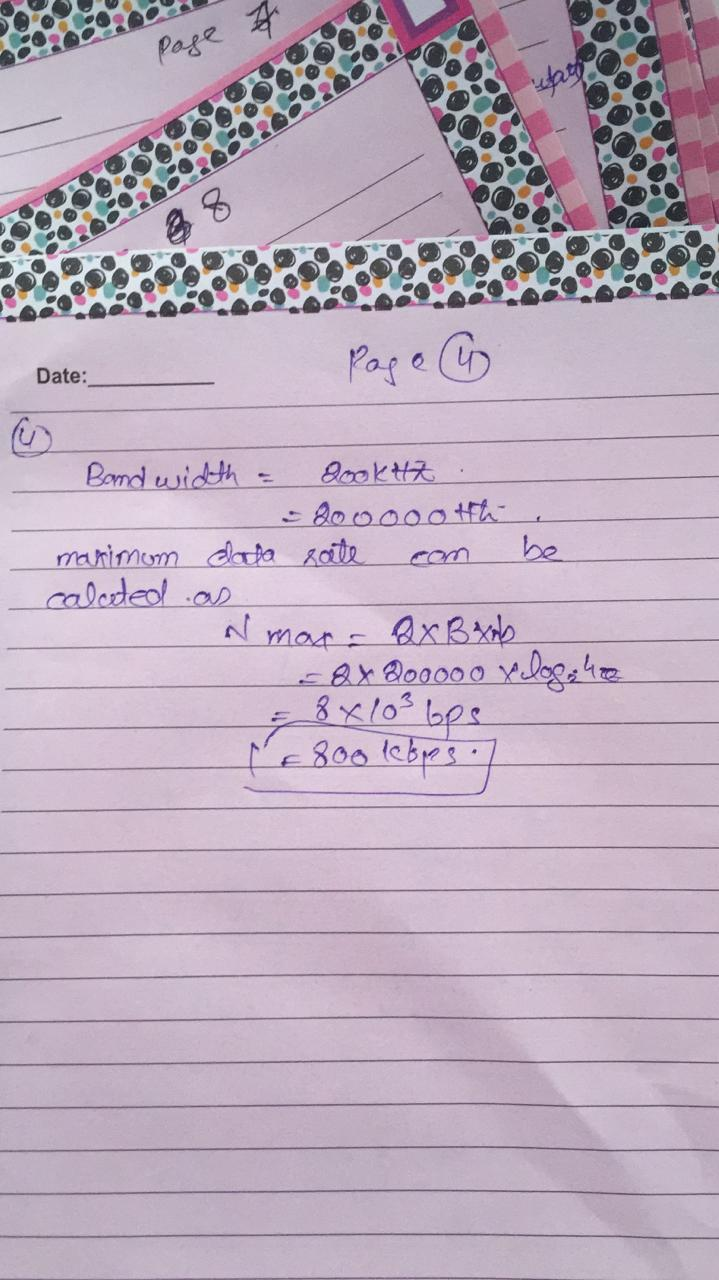 Page 7
8
Date:
Page 4
4
Bandwidth = 200kHz.
= 200000 Hz.
maximum data rate can be
calcuted as
N max = 2×B×b
= 2×200000 × log₂4
= 8×10³ bps
= 800 kbps.